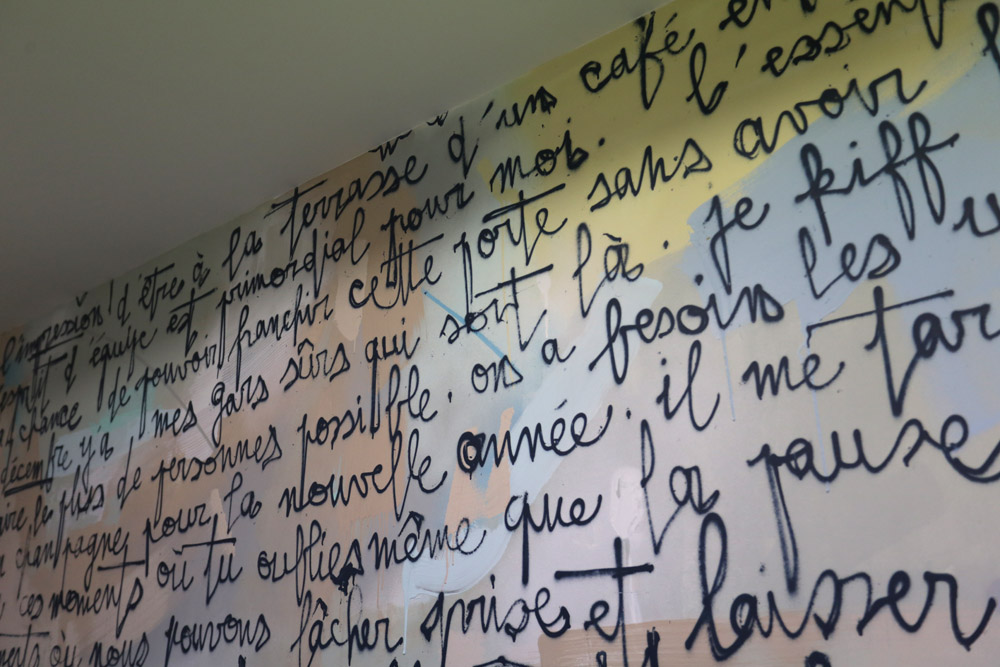 l'impression d'être à la terrasse d'un café en
esprit d'équipe est primordial pour moi. l'essen
chance de pouvoir franchir cette porte sans avoir
décembre y'a mes gars sûrs qui soit là. je kiff
le plus de personnes possible. on a besoin les
champagne, pour la nouvelle année. il me tar
ces moments où tu oublies même que la pause
où nous pouvons lâcher prise et laisser